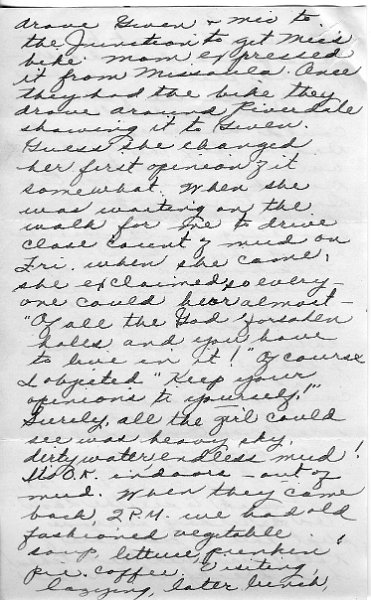 drove Gwen & Mic to
the Junction to get Mic's
bike. Mom expressed
it from Missoula. Once
they had the bike they
drove around Riverdale
showing it to Gwen.
Guess she changed
her first opinion of it
somewhat. When she
was waiting on the
walk for me to drive
close count of mud on
Fri. when she came,
she exclaimed so every-
one could hear almost -
"Of all the God forsaken
holes and you have
to live in it!" Of course
I objected "Keep your
opinions to yourself!"
Surely, all the girl could
see was heavy sky,
dirty water, endless mud!
It's O.K. indoors - out of
mud. When they came
back, 2 P.M. we had old
fashioned vegetable
soup, lettuce, punkin
pie. coffee, visiting,
lazying, later lunch,